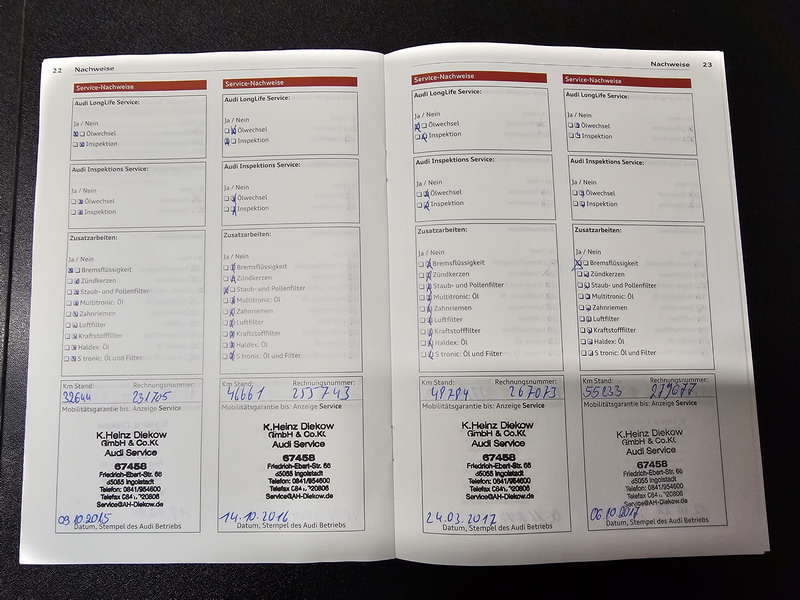 22 Nachweise
Service-Nachweise
Audi LongLife Service:
Ja / Nein
Ölwechsel
Inspektion
Audi Inspektions Service:
Ja / Nein
Ölwechsel
Inspektion
Zusatzarbeiten:
Ja / Nein
Bremsflüssigkeit
Zündkerzen
Staub- und Pollenfilter
Multitronic: Öl
Zahnriemen
Luftfilter
Kraftstofffilter
Haldex: Öl
S tronic: Öl und Filter
Km Stand: Rechnungsnummer:
32644 231705
Mobilitätsgarantie bis: Anzeige Service
K.Heinz Diekow
GmbH & Co.K
Audi Service
67458
Friedrich-Ebert-Str. 66
85055 Ingolstadt
Telefon: 0841/954600
Service@AH-Diekow.de
09.10.2015
Datum, Stempel des Audi Betriebs
Service-Nachweise
Audi LongLife Service:
Ja / Nein
Ölwechsel
Inspektion
Audi Inspektions Service:
Ja / Nein
Ölwechsel
Inspektion
Zusatzarbeiten:
Ja / Nein
Bremsflüssigkeit
Zündkerzen
Staub- und Pollenfilter
Multitronic: Öl
Zahnriemen
Luftfilter
Kraftstofffilter
Haldex: Öl
S tronic: Öl und Filter
Km Stand: Rechnungsnummer:
46661 255743
Mobilitätsgarantie bis: Anzeige Service
K.Heinz Diekow
GmbH & Co.K
Audi Service
67458
Friedrich-Ebert-Str. 66
85055 Ingolstadt
Telefon: 0841/954600
Service@AH-Diekow.de
14.10.2016
Datum, Stempel des Audi Betriebs
Nachweise 23
Service-Nachweise
Audi LongLife Service:
Ja / Nein
Ölwechsel
Inspektion
Audi Inspektions Service:
Ja / Nein
Ölwechsel
Inspektion
Zusatzarbeiten:
Ja / Nein
Bremsflüssigkeit
Zündkerzen
Staub- und Pollenfilter
Multitronic: Öl
Zahnriemen
Luftfilter
Kraftstofffilter
Haldex: Öl
S tronic: Öl und Filter
Km Stand: Rechnungsnummer:
48784 267073
Mobilitätsgarantie bis: Anzeige Service
K.Heinz Diekow
GmbH & Co.K
Audi Service
67458
Friedrich-Ebert-Str. 66
85055 Ingolstadt
Telefon: 0841/954600
Service@AH-Diekow.de
24.03.2017
Datum, Stempel des Audi Betriebs
Service-Nachweise
Audi LongLife Service:
Ja / Nein
Ölwechsel
Inspektion
Audi Inspektions Service:
Ja / Nein
Ölwechsel
Inspektion
Zusatzarbeiten:
Ja / Nein
Bremsflüssigkeit
Zündkerzen
Staub- und Pollenfilter
Multitronic: Öl
Zahnriemen
Luftfilter
Kraftstofffilter
Haldex: Öl
S tronic: Öl und Filter
Km Stand: Rechnungsnummer:
55233 279077
Mobilitätsgarantie bis: Anzeige Service
K.Heinz Diekow
GmbH & Co.K
Audi Service
67458
Friedrich-Ebert-Str. 66
85055 Ingolstadt
Telefon: 0841/954600
Service@AH-Diekow.de
06.10.2017
Datum, Stempel des Audi Betriebs